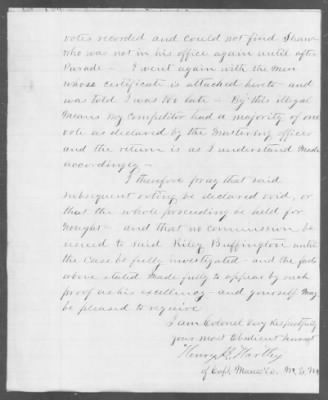 votes recorded and could not find Shaw
who was not in his office again until after
Parade - I went again with the men
whose certificate is attached hereto - and
was told I was too late - By this illegal
means my competitor had a majority of one
vote as declared by the Mustering officer
and the return is as I understand made
accordingly -
I therefore pray that said
subsequent voting be declared void, or
that the whole proceeding be held for
nought - and that no commission be
issued to said Riley Buffington until
the case be fully investigated - and the facts
above stated made fully to appear by such
proof as his excellency - and yourself may
be pleased to require
I am Colonel Very Respectfully
your most Obedient Servant
Henry B. Hartley
of Capt